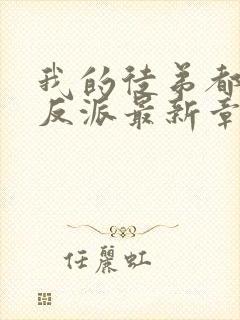 我的徒弟都
反派最新章
任麗虹